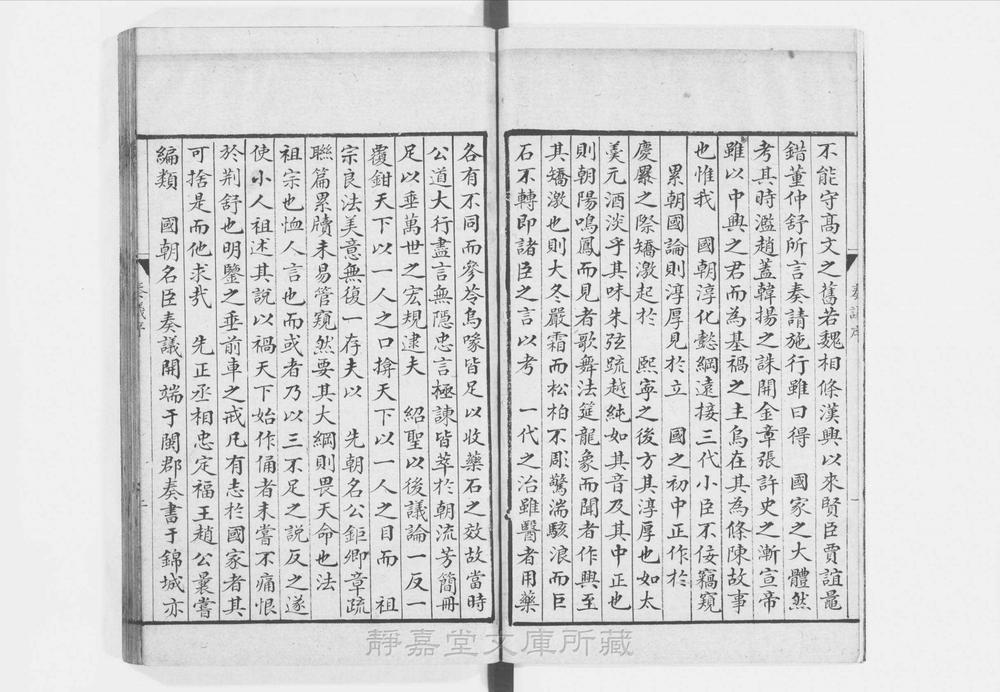 不能守髙文之舊若魏相條漢興以來賢臣賈誼鼂
錯董仲舒所言奏請施行雖曰得　國家之大體然
考其時濫趙蓋韓揚之誅開金章張許史之漸宣帝
雖以中興之君而為基禍之主烏在其為條陳故事
也惟我　國朝淳化懿綱遠接三代小臣不佞竊窺
累朝國論則淳厚見於立　國之初中正作於
慶曆之際矯激起於　熙寧之後方其淳厚也如太
羹元酒淡乎其味朱弦疏越純如其音及其中正也
則朝陽鳴鳳而見者歌舞法筵龍象而聞者作興至
其矯激也則大冬嚴霜而松柏不彫驚湍駭浪而巨
石不轉即諸臣之言以考　一代之治雖醫者用藥
各有不同而參苓烏喙皆足以收藥石之效故當時
公道大行盡言無隱忠言極諫皆萃於朝流芳簡冊
足以垂萬世之宏規逮夫　紹聖以後議論一反一
覆鉗天下以一人之口揜天下以一人之目而　祖
宗良法美意無復一存夫以　先朝名公鉅卿章疏
聯篇累牘未易管窺然要其大綱則畏天命也法
祖宗也恤人言也而或者乃以三不足之説反之遂
使小人祖述其說以禍天下始作俑者未嘗不痛恨
於荆舒也明鑒之垂前車之戒凡有志於國家者其
可捨是而他求哉　先正丞相忠定福王趙公曩嘗
編類　國朝名臣奏議開端于閩郡奏書于錦城亦
奏議序
靜嘉堂文庫所藏